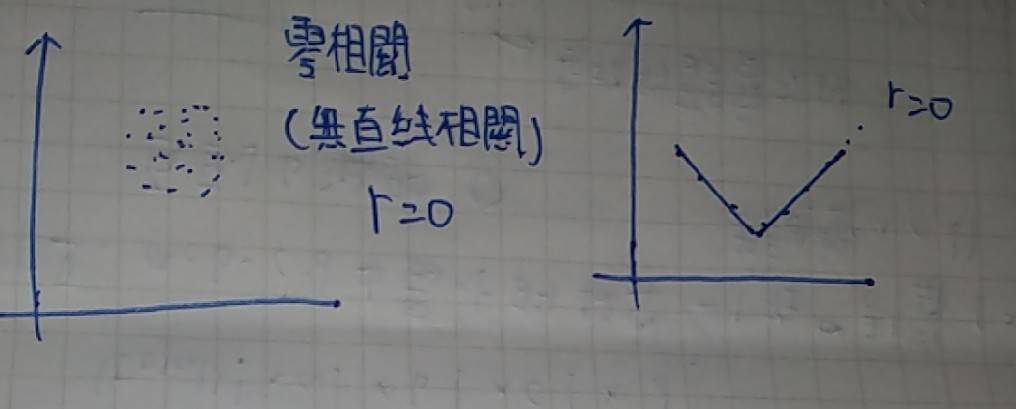 零相關
(無直线相關)
r=0
r=0